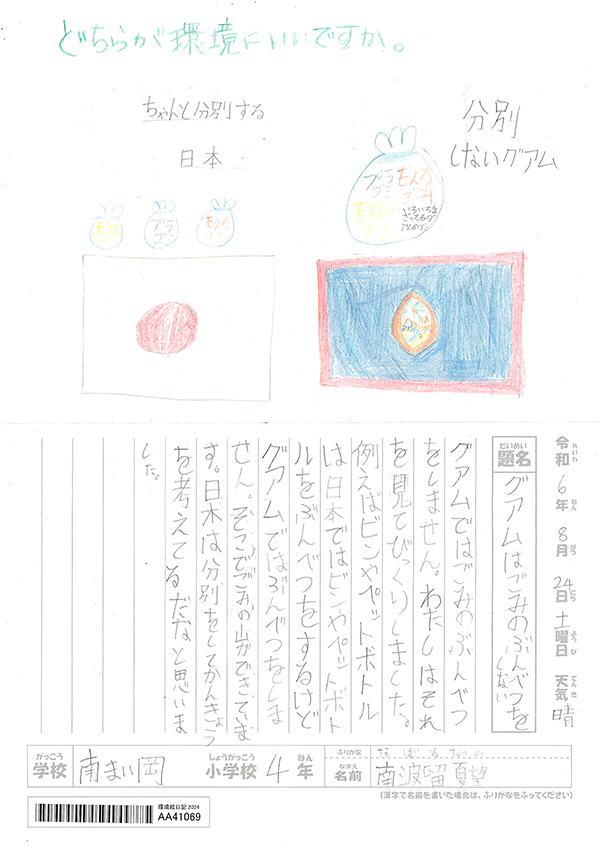 どちらが環境にいいですか。
ちゃんと分別する
日本
分別
しないグアム
もえない
ゴミ
プラ
ゴミ
もえる
ゴミ
プラ
ゴミ
もえる
ゴミ
もえない
ゴミ
いろいろま
ざってるグ
アムのゴミ
令和6年8月24日土曜日 天気 晴
れいわ ねん がつ にち ようび てんき
だいめい
題名
グアムはごみのぶんべつを
しない
グアムではごみのぶんべつ
をしません。わたしはそれ
を見てびっくりしました。
例えばビンやペットボトル
は日本ではビンやペットボト
ルをぶんべつをするけど
グアムではぶんべつをしま
せん。そこでごみの山ができています。
す。日本は分別をしてかんきょう
を考えてるだなと思いま
した。
がっこう
学校
南まい岡
しょうがっこう
小学校
4
ねん
年
ふりがな
なまえ
名前
南波留夏望
(漢字で名前を書いた場合は、ふりがなをふってください)
環境絵日記2024
AA41069